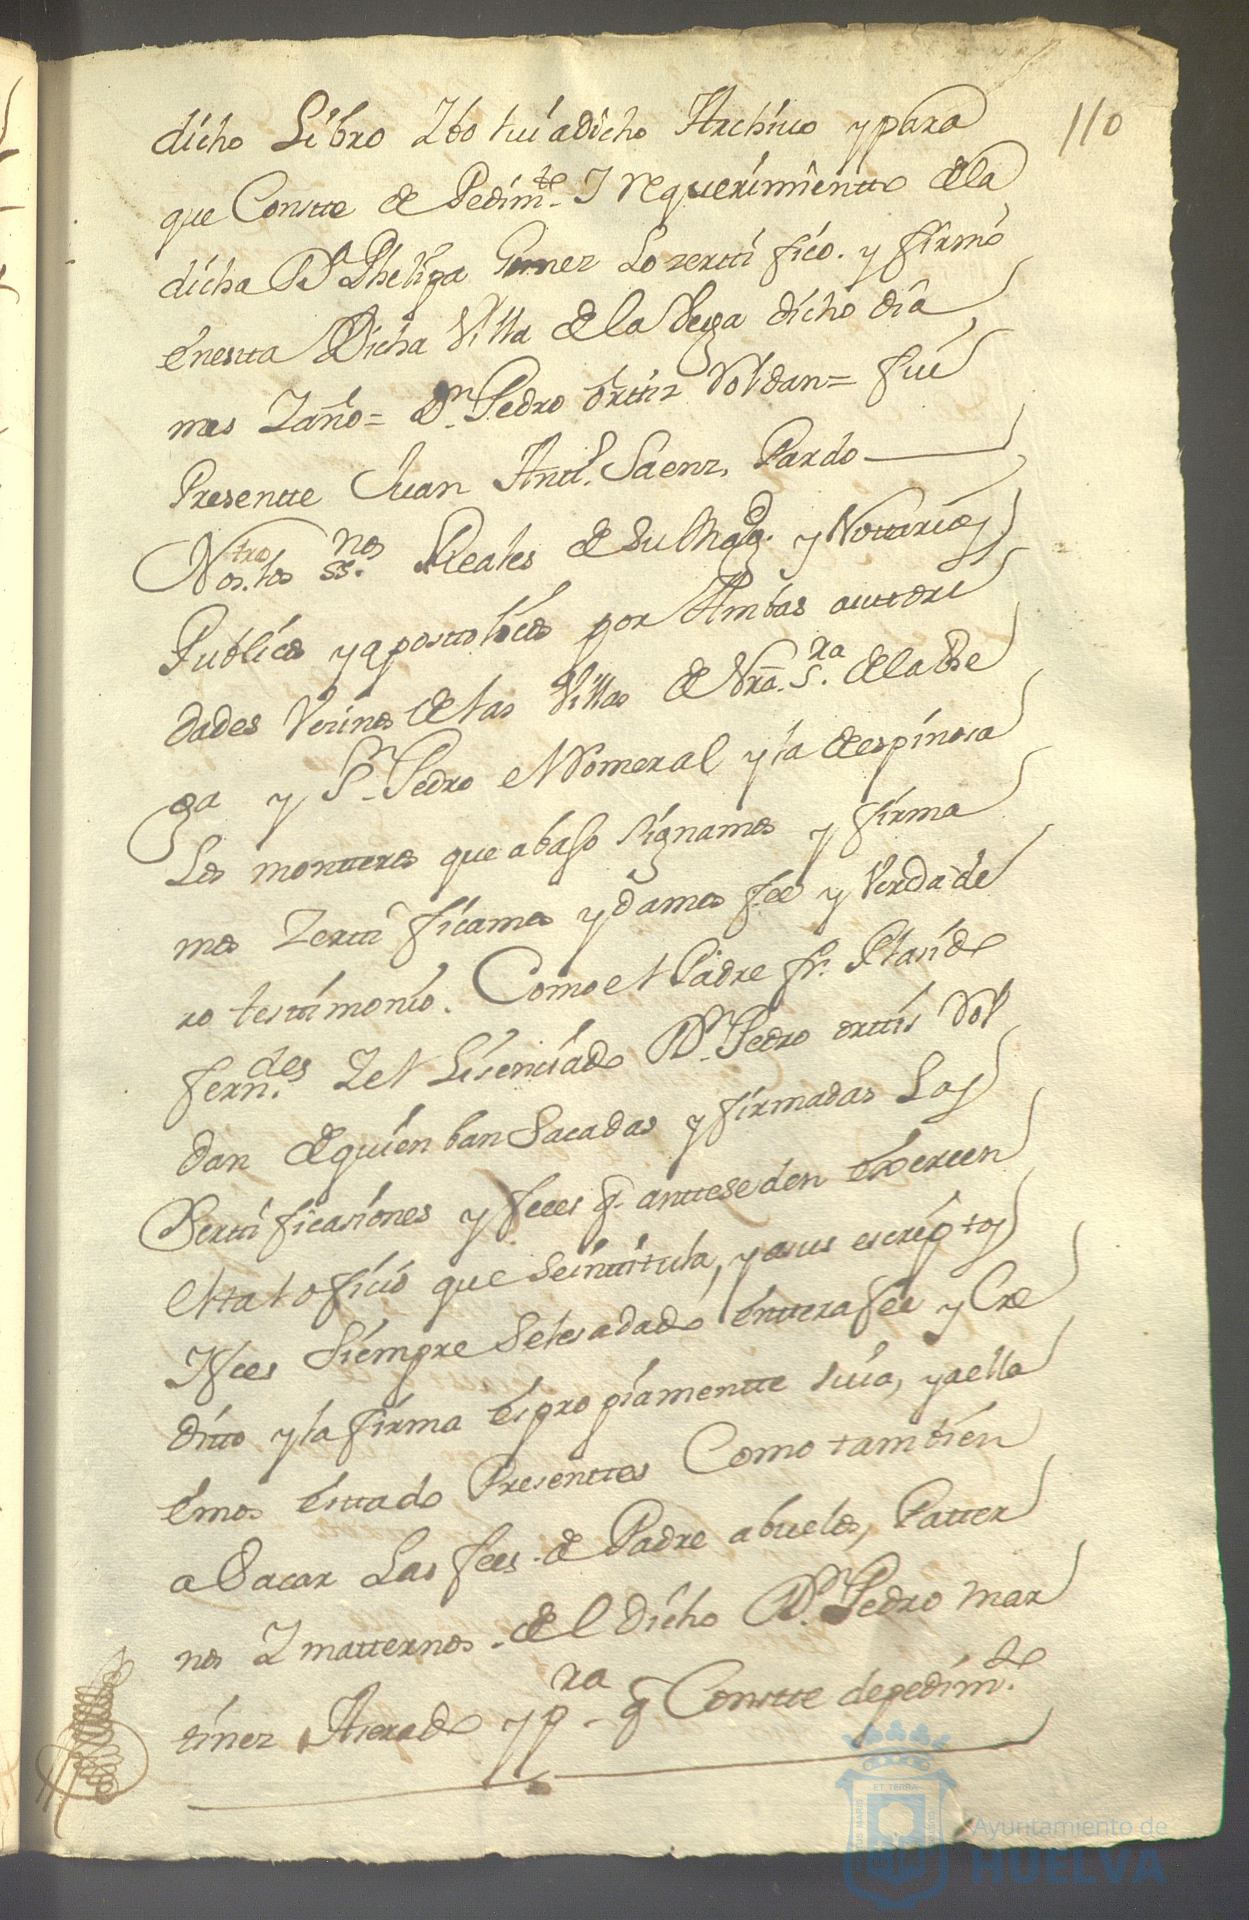 110
dicho Libro Zbo tui adicho Archivo y para
que Constte de Pedimto. I requerimientto de la
dicha Da. Phelipa Gomez Lo zertti fico. y firmó
énestta Dicha Villa de la Vega dicho dia
mes Zaño= Dn. Pedro órttiz Roldan= fui
Presentte Juan Antto. Saenz, Pardo
Nostros. los ssnos. Reales de Su Magd. y Nottarios
Publicos y apostolicos por Ambas auttori
dades Vezinos de las Villas de Nra. Sra. de la Ve
ga y Sn. Pedro el Romeral y ia de espinosa
Los montteros que abaso signamos y firma
mos Zertti ficamos y damos fee y Verdade
ro testtimonio. Como el Padre fr. Plasido
ferndes. Zel Lisensiado Dn. Pedro orttis Rol
dan de quien ban Sacadas y firmadas Las
Serttificasiones y feees q. antteseden éxercen
el tal ofisio que se inttitula, y asus escriptos
Ntes Siempre seles a dado énttera fée y Cre
ditto y la firma és propiamentte suia, y a ella
émos esttado Presenttes Como tambien
a Sacar Las fees. de Padre abuelos, Patter
nos Z matternos. del dicho Dn. Pedro mar
tinez Hierado y pra. q Constte de pedimto.
ET TERRÆ
Ayuntamiento de
HUELVA